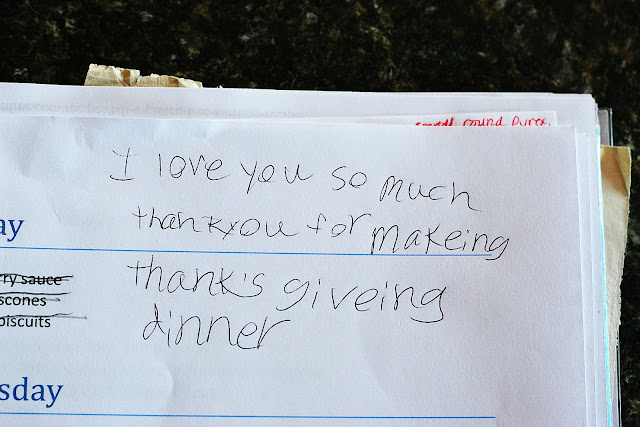 small round Pyrex
I love you so much
thankyou for makeing
ay
thank's giveing
ry sauce
scones
biscuits
dinner
sday